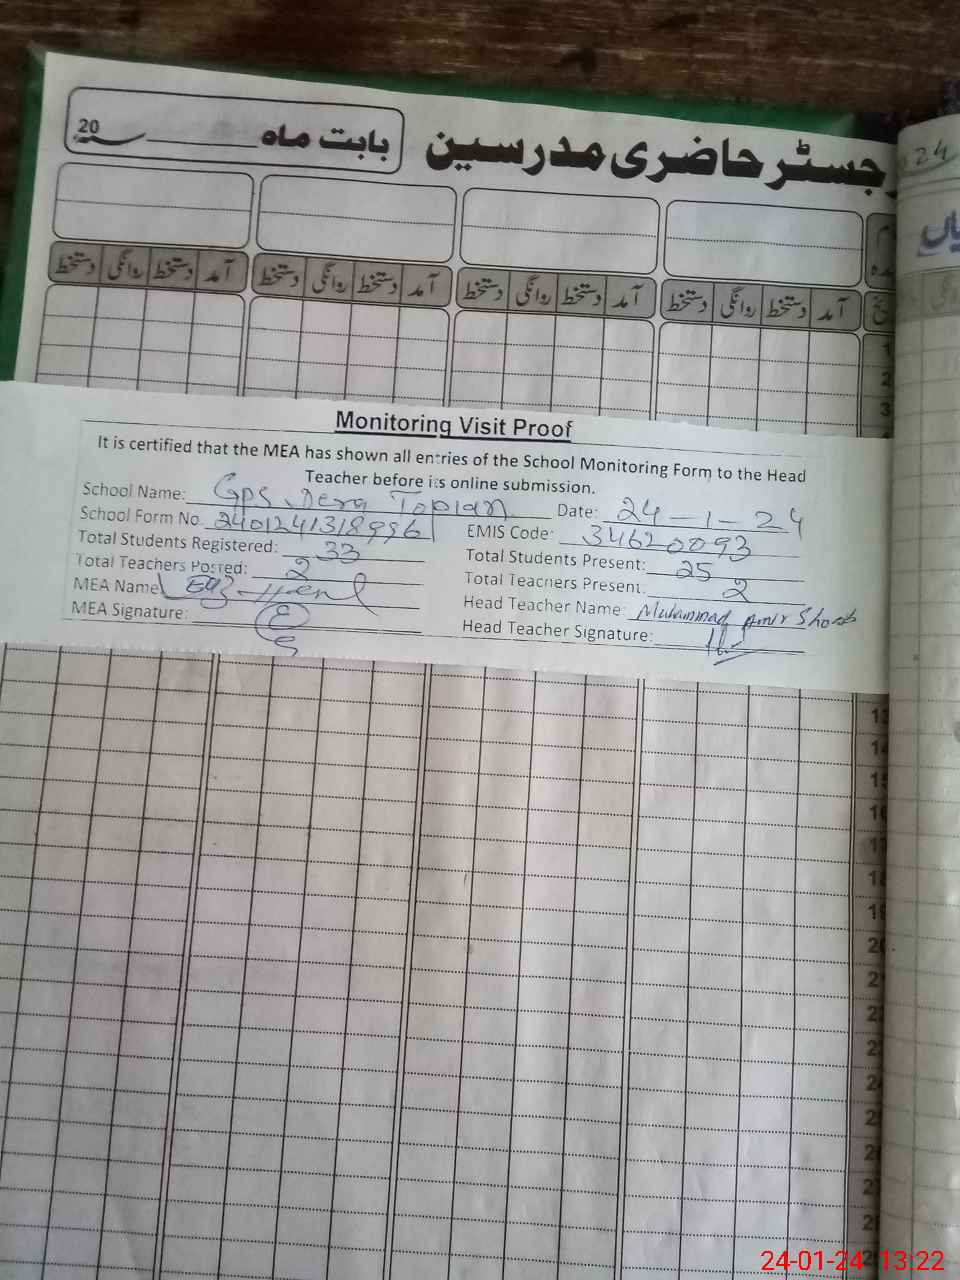 رجسٹر حاضری مدرسین
بابت ماہ ________ 20
آمد دستخط روانگی دستخط آمد دستخط روانگی دستخط آمد دستخط روانگی دستخط آمد دستخط روانگی دستخط
1
2
3
Monitoring Visit Proof
It is certified that the MEA has shown all entries of the School Monitoring Form to the Head
Teacher before its online submission.
School Name: Gps Dera Topian Date: 24-1-24
School Form No. 2401241318996 EMIS Code: 34620093
Total Students Registered: 33 Total Students Present: 25
Total Teachers Posted: 2 Total Teachers Present: 2
MEA Name: Head Teacher Name: Muhammad Amir
MEA Signature: Head Teacher Signature:
13
14
15
16
17
18
19
20
21
22
23
24
25
26
27
24-01-24 13:22